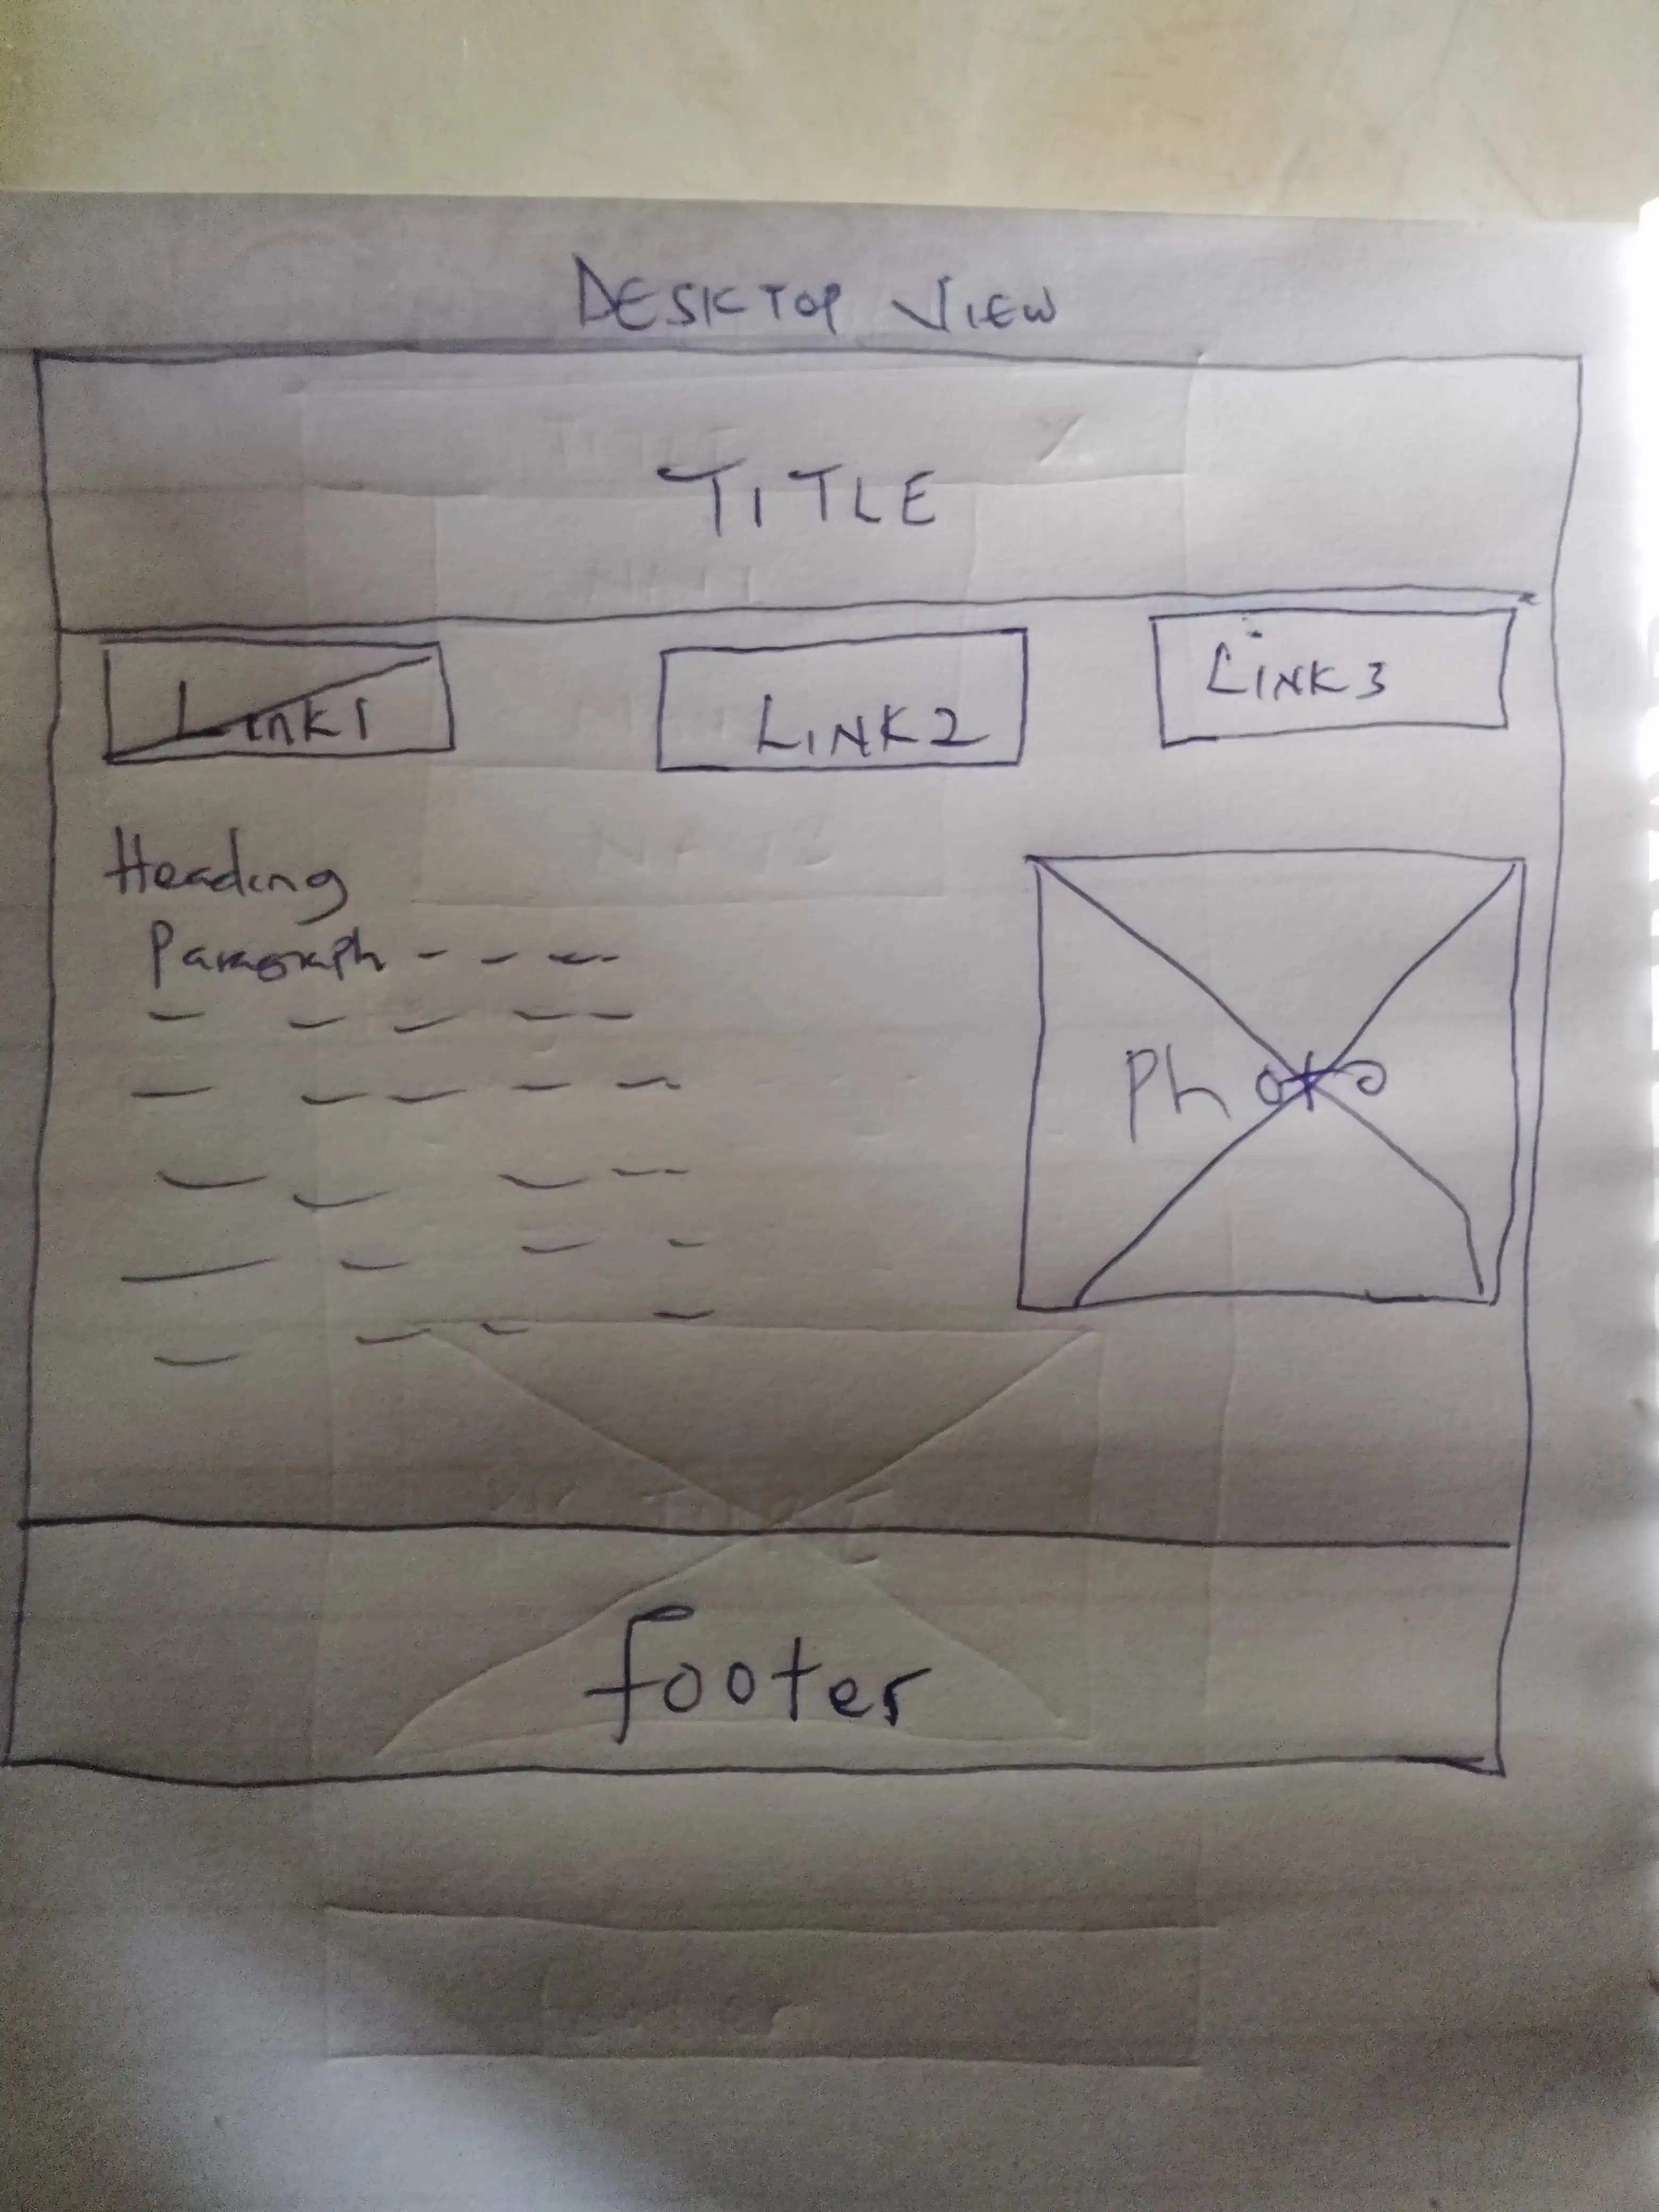 DESKTOP VIEW
TITLE
Link1 LINK2 LINK3
Heading
Paragraph - - -
Photo
footer